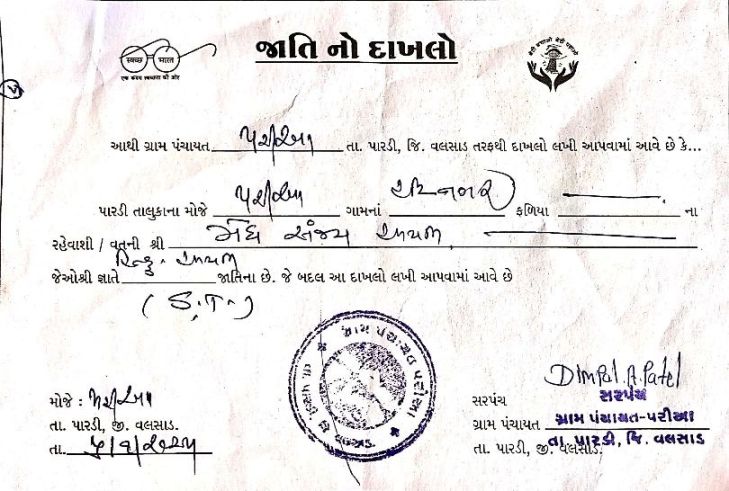 જાતિ નો દાખલો
સ્વચ્છ ભારત
એક કદમ સ્વચ્છતા કી ઓર
બેટી બચાઓ બેટી પઢાઓ
આથી ગ્રામ પંચાયત પરીઆ તા. પારડી, જિ. વલસાડ તરફથી દાખલો લખી આપવામાં આવે છે કે...
પારડી તાલુકાના મોજે પરીઆ ગામનાં ફળિયા ના
રહેવાશી / વતની શ્રી સંજય
જેઓશ્રી જ્ઞાતે હિન્દુ જાતિના છે. જે બદલ આ દાખલો લખી આપવામાં આવે છે
(S.T.)
ગ્રામ પંચાયત પરીઆ
તા. પારડી
વલસાડ
મોજે : પરીઆ
તા. પારડી, જી. વલસાડ.
તા.
Dimpal.A.Patel
સરપંચ
સરપંચ
ગ્રામ પંચાયત ગ્રામ પંચાયત-પરીઆ
તા. પારડી, જી. વલસાડ.
તા. પારડી, જિ. વલસાડ